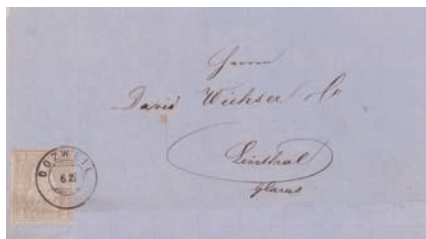 Herren
David Wichser & Co
Linthal
Glarus
DOZWEIL